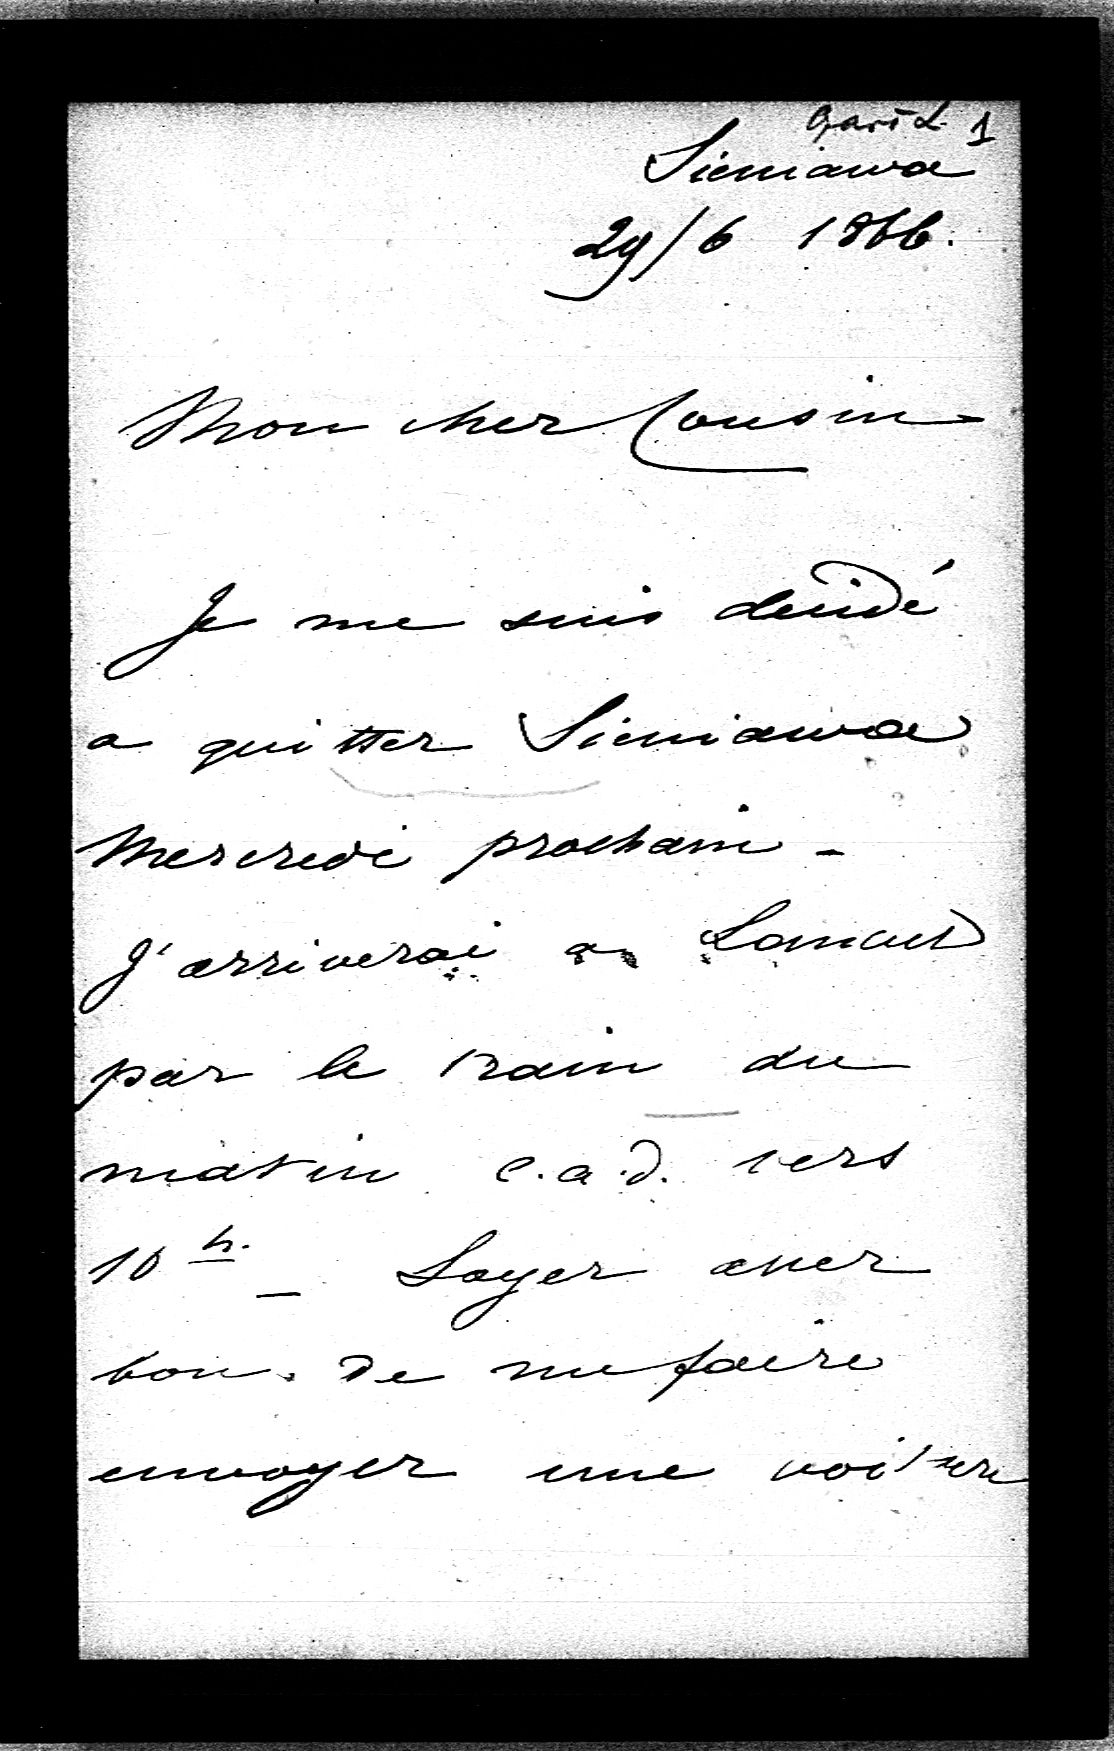 1
Sieniawa
29/6 1866.
Mon cher Cousin
Je me suis decidé
a quitter Sieniawa
Mercredi prochain -
J'arriverai a Lancut
par le train du
matin c.a.d. vers
10 h. _ Soyez assez
bon de me faire
envoyer une voiture